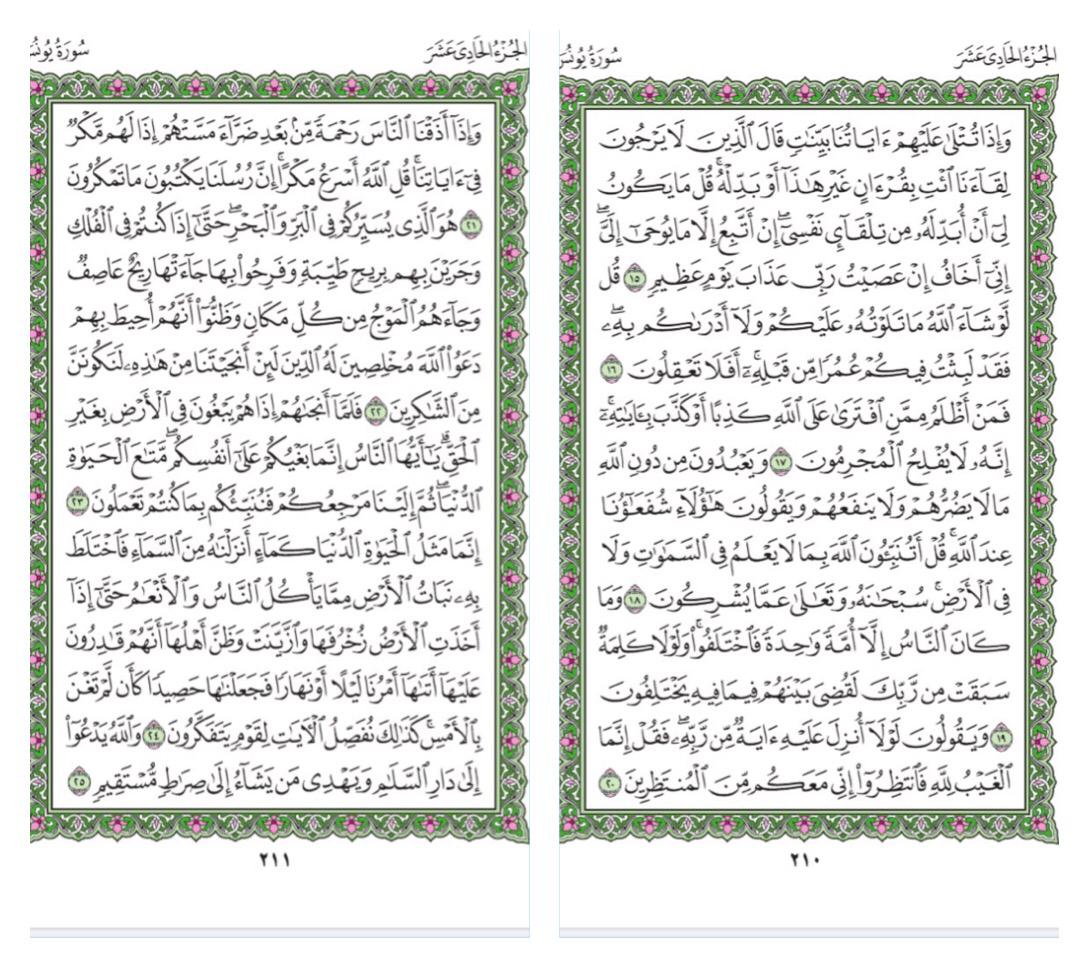 الجُزْءُ الحَادِي عَشَرَ
سُورَةُ يُونُسَ
وَإِذَا تُتْلَىٰ عَلَيْهِمْ ءَايَاتُنَا بَيِّنَٰتٍ قَالَ ٱلَّذِينَ لَا يَرْجُونَ
لِقَآءَنَا ٱئْتِ بِقُرْءَانٍ غَيْرِ هَٰذَآ أَوْ بَدِّلْهُ ۚ قُلْ مَا يَكُونُ
لِىٓ أَنْ أُبَدِّلَهُۥ مِن تِلْقَآئِ نَفْسِىٓ ۖ إِنْ أَتَّبِعُ إِلَّا مَا يُوحَىٰٓ إِلَىَّ ۖ
إِنِّىٓ أَخَافُ إِنْ عَصَيْتُ رَبِّى عَذَابَ يَوْمٍ عَظِيمٍ ١٥ قُل
لَّوْ شَآءَ ٱللَّهُ مَا تَلَوْتُهُۥ عَلَيْكُمْ وَلَآ أَدْرَىٰكُم بِهِۦ ۖ
فَقَدْ لَبِثْتُ فِيكُمْ عُمُرًا مِّن قَبْلِهِۦٓ ۚ أَفَلَا تَعْقِلُونَ ١٦
فَمَنْ أَظْلَمُ مِمَّنِ ٱفْتَرَىٰ عَلَى ٱللَّهِ كَذِبًا أَوْ كَذَّبَ بِـَٔايَٰتِهِۦٓ ۚ
إِنَّهُۥ لَا يُفْلِحُ ٱلْمُجْرِمُونَ ١٧ وَيَعْبُدُونَ مِن دُونِ ٱللَّهِ
مَا لَا يَضُرُّهُمْ وَلَا يَنفَعُهُمْ وَيَقُولُونَ هَٰٓؤُلَآءِ شُفَعَٰٓؤُنَا
عِندَ ٱللَّهِ ۚ قُلْ أَتُنَبِّـُٔونَ ٱللَّهَ بِمَا لَا يَعْلَمُ فِى ٱلسَّمَٰوَٰتِ وَلَا
فِى ٱلْأَرْضِ ۚ سُبْحَٰنَهُۥ وَتَعَٰلَىٰ عَمَّا يُشْرِكُونَ ١٨ وَمَا
كَانَ ٱلنَّاسُ إِلَّآ أُمَّةً وَٰحِدَةً فَٱخْتَلَفُوا۟ ۚ وَلَوْلَا كَلِمَةٌ
سَبَقَتْ مِن رَّبِّكَ لَقُضِىَ بَيْنَهُمْ فِيمَا فِيهِ يَخْتَلِفُونَ
١٩ وَيَقُولُونَ لَوْلَآ أُنزِلَ عَلَيْهِ ءَايَةٌ مِّن رَّبِّهِۦ ۖ فَقُلْ إِنَّمَا
ٱلْغَيْبُ لِلَّهِ فَٱنتَظِرُوٓا۟ إِنِّى مَعَكُم مِّنَ ٱلْمُنتَظِرِينَ ٢٠
٢١٠
الجُزْءُ الحَادِي عَشَرَ
سُورَةُ يُونُسَ
وَإِذَآ أَذَقْنَا ٱلنَّاسَ رَحْمَةً مِّنۢ بَعْدِ ضَرَّآءَ مَسَّتْهُمْ إِذَا لَهُم مَّكْرٌ
فِىٓ ءَايَاتِنَا ۚ قُلِ ٱللَّهُ أَسْرَعُ مَكْرًا ۚ إِنَّ رُسُلَنَا يَكْتُبُونَ مَا تَمْكُرُونَ
٢١ هُوَ ٱلَّذِى يُسَيِّرُكُمْ فِى ٱلْبَرِّ وَٱلْبَحْرِ ۖ حَتَّىٰٓ إِذَا كُنتُمْ فِى ٱلْفُلْكِ
وَجَرَيْنَ بِهِم بِرِيحٍ طَيِّبَةٍ وَفَرِحُوا۟ بِهَا جَآءَتْهَا رِيحٌ عَاصِفٌ
وَجَآءَهُمُ ٱلْمَوْجُ مِن كُلِّ مَكَانٍ وَظَنُّوٓا۟ أَنَّهُمْ أُحِيطَ بِهِمْ ۙ
دَعَوُا۟ ٱللَّهَ مُخْلِصِينَ لَهُ ٱلدِّينَ لَئِنْ أَنجَيْتَنَا مِنْ هَٰذِهِۦ لَنَكُونَنَّ
مِنَ ٱلشَّٰكِرِينَ ٢٢ فَلَمَّآ أَنجَىٰهُمْ إِذَا هُمْ يَبْغُونَ فِى ٱلْأَرْضِ بِغَيْرِ
ٱلْحَقِّ ۗ يَٰٓأَيُّهَا ٱلنَّاسُ إِنَّمَا بَغْيُكُمْ عَلَىٰٓ أَنفُسِكُم ۖ مَّتَٰعَ ٱلْحَيَوٰةِ
ٱلدُّنْيَا ۖ ثُمَّ إِلَيْنَا مَرْجِعُكُمْ فَنُنَبِّئُكُم بِمَا كُنتُمْ تَعْمَلُونَ ٢٣
إِنَّمَا مَثَلُ ٱلْحَيَوٰةِ ٱلدُّنْيَا كَمَآءٍ أَنزَلْنَٰهُ مِنَ ٱلسَّمَآءِ فَٱخْتَلَطَ
بِهِۦ نَبَاتُ ٱلْأَرْضِ مِمَّا يَأْكُلُ ٱلنَّاسُ وَٱلْأَنْعَٰمُ حَتَّىٰٓ إِذَآ
أَخَذَتِ ٱلْأَرْضُ زُخْرُفَهَا وَٱزَّيَّنَتْ وَظَنَّ أَهْلُهَآ أَنَّهُمْ قَٰدِرُونَ
عَلَيْهَآ أَتَىٰهَآ أَمْرُنَا لَيْلًا أَوْ نَهَارًا فَجَعَلْنَٰهَا حَصِيدًا كَأَن لَّمْ تَغْنَ
بِٱلْأَمْسِ ۚ كَذَٰلِكَ نُفَصِّلُ ٱلْءَايَٰتِ لِقَوْمٍ يَتَفَكَّرُونَ ٢٤ وَٱللَّهُ يَدْعُوٓا۟
إِلَىٰ دَارِ ٱلسَّلَٰمِ وَيَهْدِى مَن يَشَآءُ إِلَىٰ صِرَٰطٍ مُّسْتَقِيمٍ ٢٥
٢١١